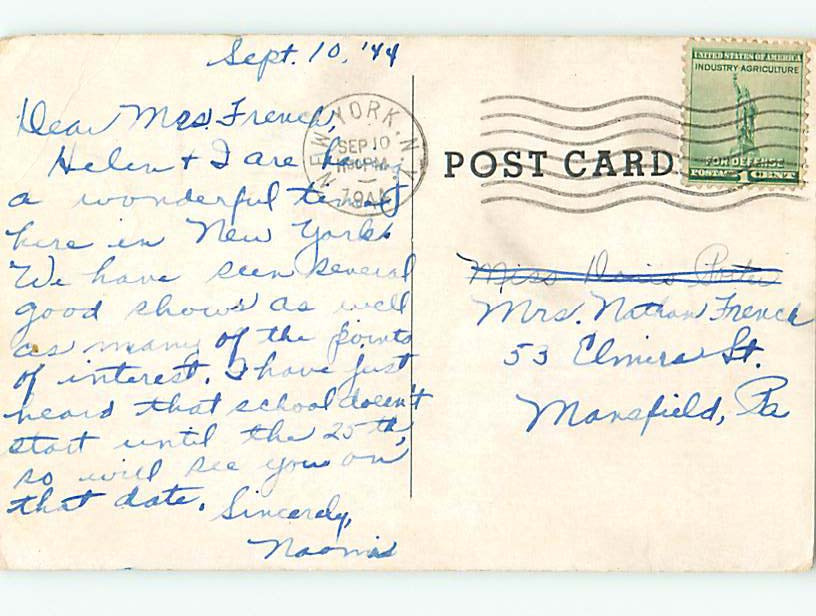 Sept. 10, '44
Dear Mrs. French,
Helen + I are having
a wonderful time
here in New York.
We have seen several
good shows as well
as many of the points
of interest. I have just
heard that school doesn't
start until the 25th,
so will see you on
that date.
Sincerely,
Naomi
NEW YORK, N.Y.
SEP 10
PM
1944
POST CARD
UNITED STATES OF AMERICA
INDUSTRY AGRICULTURE
FOR DEFENSE
POSTAGE 1 CENT
Miss Doris
Mrs. Nathan French
53 Elmira St.
Mansfield, Pa